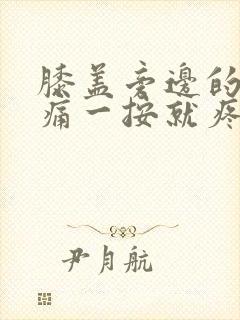 膝盖旁边的
痛一按就疼
尹月航